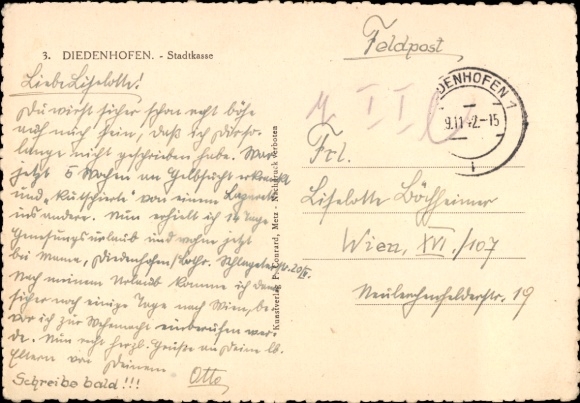 3. DIEDENHOFEN. - Stadtkasse
Liebe Liselotte!
Du wirst sicher schon recht böse
auf mich sein, daß ich Dir so
lange nicht geschrieben habe. War
jetzt 5 Wochen an Gelbsucht erkrankt
und "kutschierte" von einem Lazarett
ins andere. Nun erhielt ich 14 Tage
Genesungsurlaub und wohne jetzt
bei Mama, Diedenhofen/Lothr. Schlageterstr. 20/II.
Nach meinem Urlaub komme ich dann
sicher noch einige Tage nach Wien, be-
vor ich zur Wehrmacht einberufen wer-
de. Nun recht herzl. Grüße an Deine lb.
Eltern von Deinem
Otto
Schreibe bald!!!
Kunstverlag P. Conrard, Metz - Nachdruck verboten
Feldpost
DENHOFEN 1
9.11.42.-15
Frl.
Liselotte
Wien, XVI./107
Neulerchenfelderstr. 19